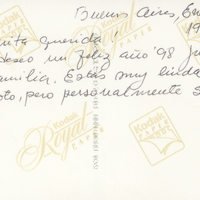 Buenos Aires, En
19
nita querida!
deseo un feliz año '98 ju
amilia. Estás muy linda
oto, pero personalmente s
Kodak
Royal
PAPER
Kodak
PAPER
Kodak
Royal
PAPER
Kodak